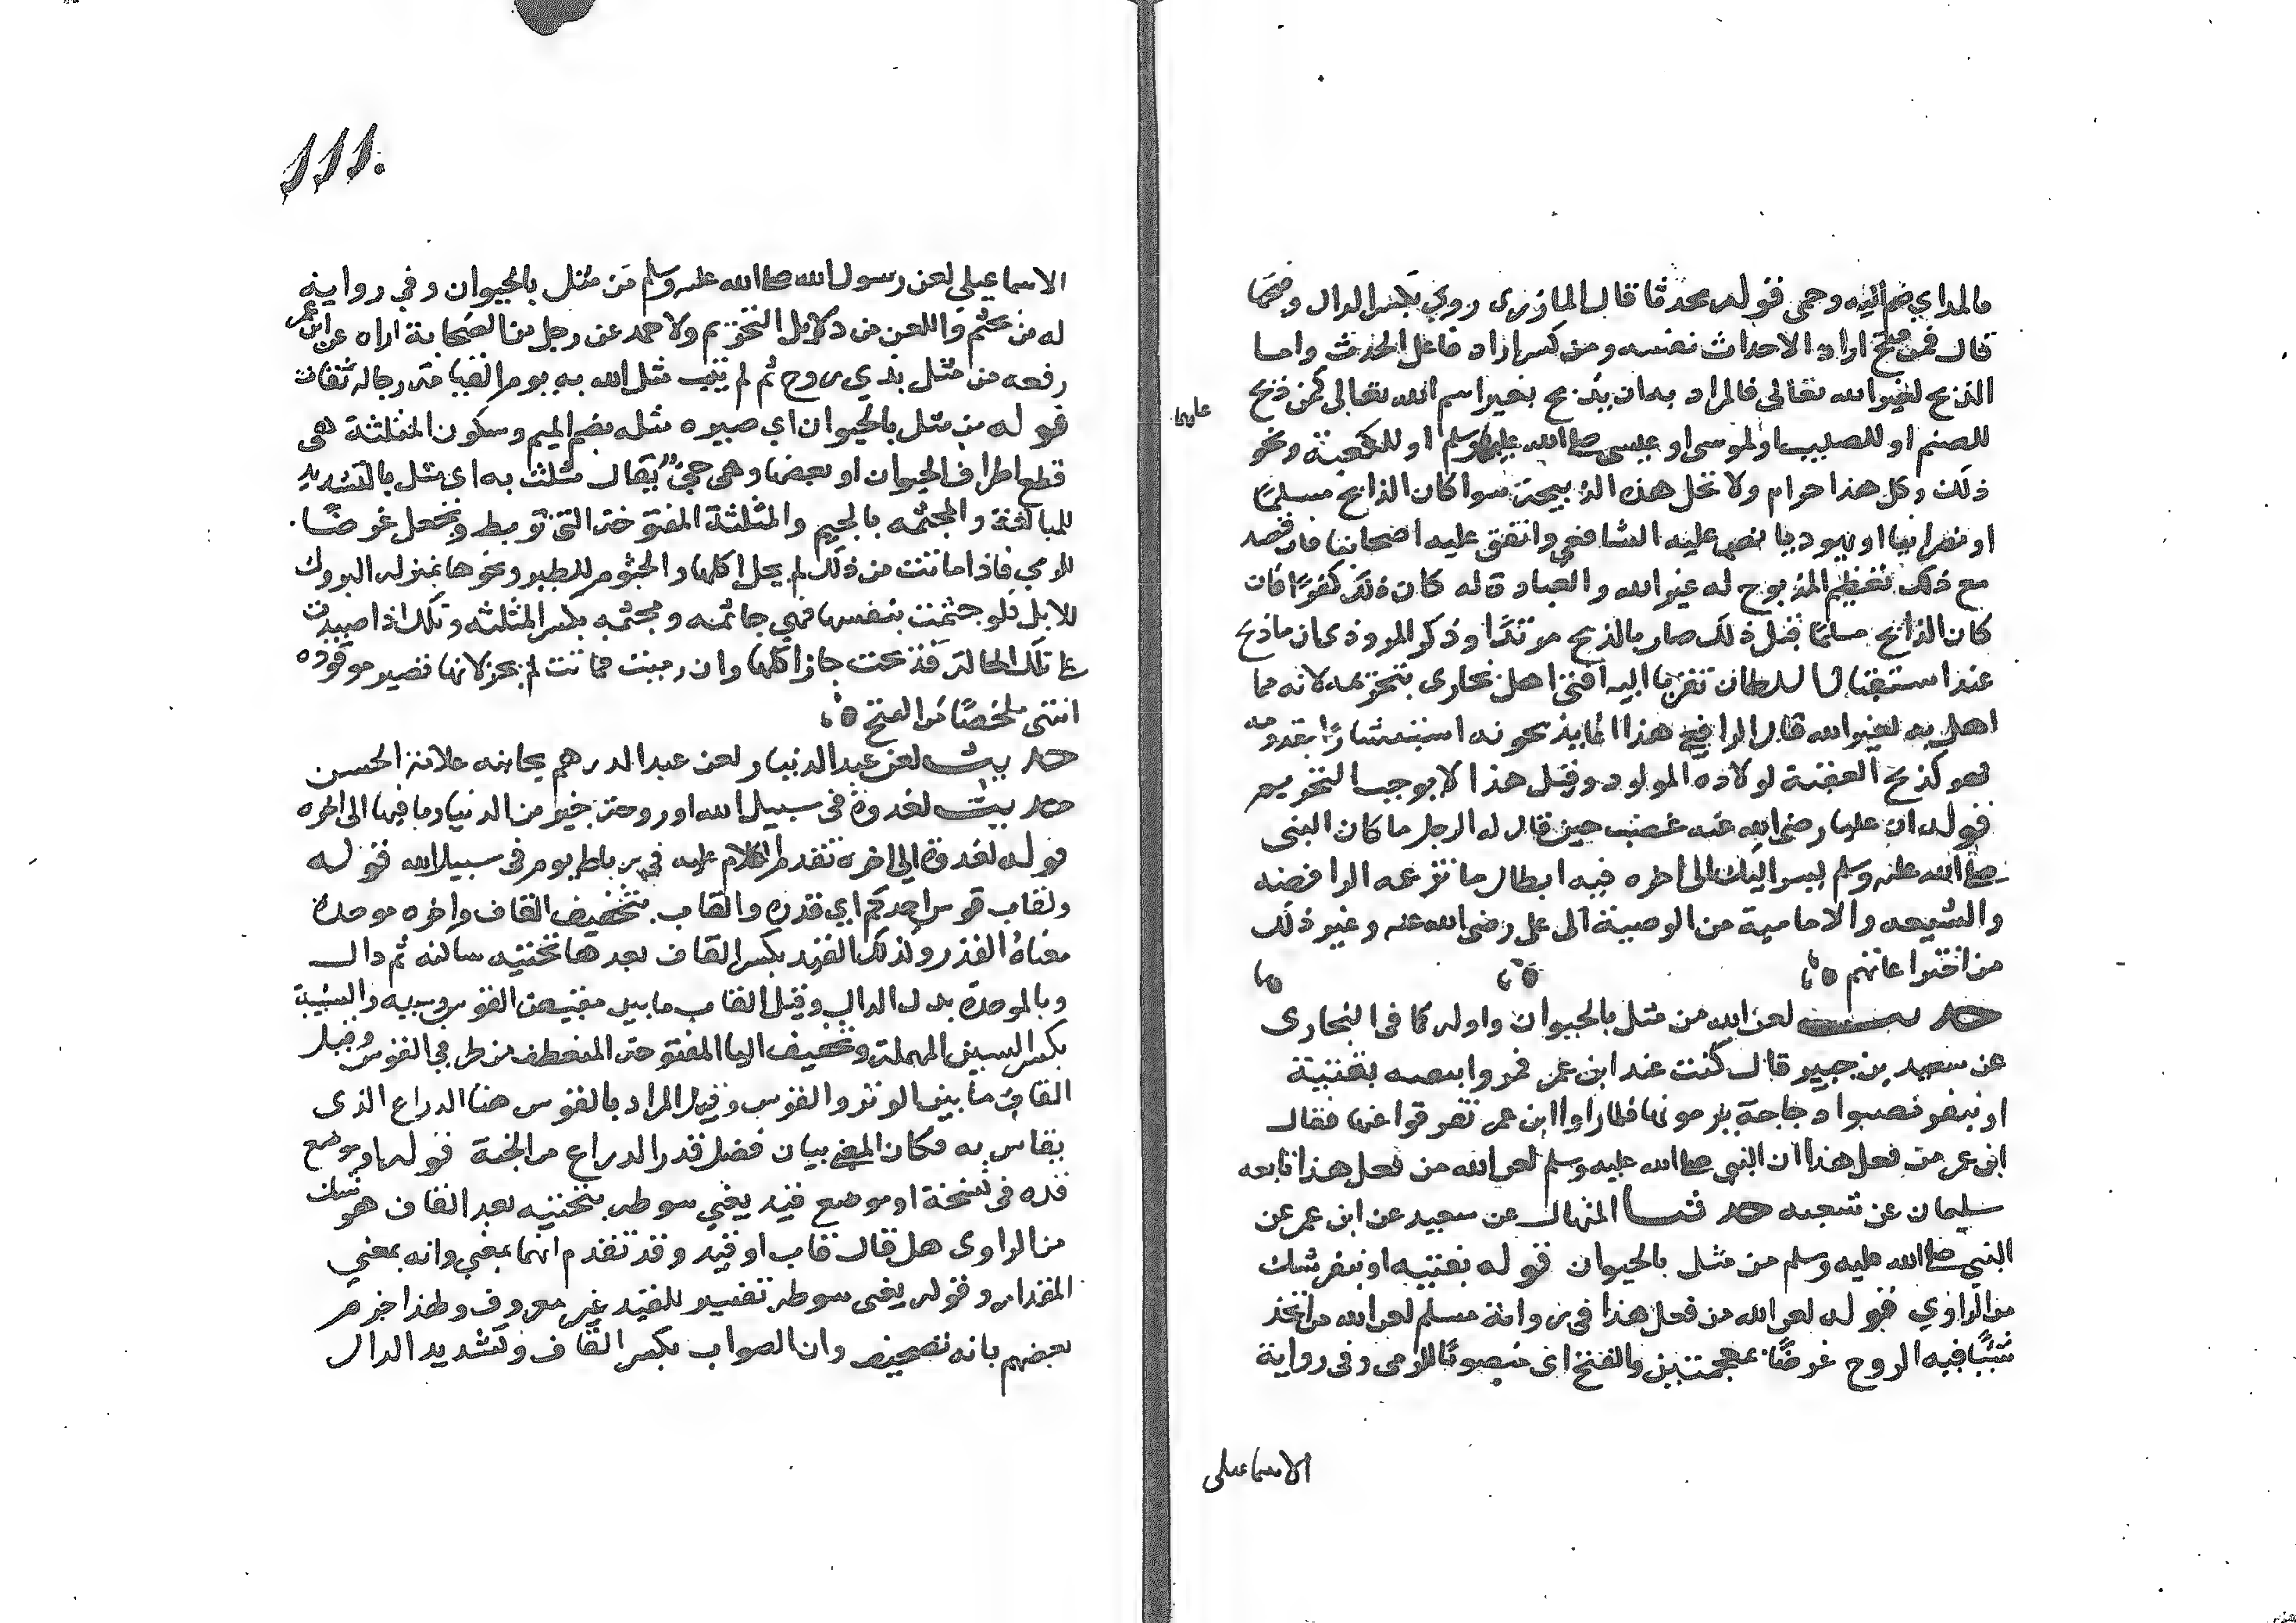 بالمد اي ضم اليه وحمى قوله محدثا قال المازرى روي بكسر الدال وفتحها
قال فمن فتح اراد الاحداث نفسه ومن كسر اراد فاعل الحدث واما
الذبح لغير الله تعالى فالمراد به ان يذبح بغير اسم الله تعالى كمن ذبح
للصنم او للصليب او لموسى او عيسى صلى الله عليهما وسلم او للكعبة ونحو
عليهما
ذلك وكل هذا حرام ولا تحل هذه الذبيحة سوا كان الذابح مسلما
او نصرانيا او يهوديا نص عليه الشافعي واتفق عليه اصحابنا فان قصد
مع ذلك تعظيم المذبوح له غير الله والعبادة له كان ذلك كفرًا فان
كان الذابح مسلمًا قبل ذلك صار بالذبح مرتدًا وذكر المروذى ان ما ذبح
عند استقبال السلطان تقربا اليه افتى اهل بخارى بتحريمه لانه مما
اهل به لغير الله قال الرافعي هذا انما يذبحونه استبشارًا بقدومه
فهو كذبح العقيقة لولادة المولود ومثل هذا لا يوجب التحريم
قوله ان عليا رضى الله عنه غضب حين قال له الرجل ما كان النبى
صلى الله عليه وسلم يسر اليك الى اخره فيه ابطال ما تزعمه الرافضه
والشيعه والامامية من الوصية الى على رضى الله عنه وغير ذلك
من اختراعاتهم
حديث لعن الله من مثل بالحيوان واوله كما فى البخارى
عن سعيد بن جبير قال كنت عند ابن عمر فمروا بفتية
او بنفر نصبوا دجاجة يرمونها فلما راوا ابن عمر تفرقوا عنها فقال
ابن عمر من فعل هذا ان النبي صلى الله عليه وسلم لعن الله من فعل هذا تابعه
سليمان عن شعبه حدثنا المنهال عن سعيد عن ابن عمر عن
النبي صلى الله عليه وسلم من مثل بالحيوان قوله بفتيه او بنفر شك
من الراوي قوله لعن الله من فعل هذا فى رواية مسلم لعن الله من اتخذ
شيئًا فيه الروح غرضًا بمعجمتين والفتح اى منصوبًا للرمى وفى رواية
الاسماعيلى
١١١٠
الاسماعيلي لعن رسول الله صلى الله عليه وسلم من مثل بالحيوان وفي رواية
له من تجثم واللعن من دلايل التحريم ولاحمد عن رجل من الصحابة اراه عن ابن عمر
رفعه من مثل بذي روح ثم لم يتب مثل الله به يوم القيامة رجاله ثقات
قوله من مثل بالحيوان اي صيره مثله بضم الميم وسكون المثلثة هى
قطع اطراف الحيوان او بعضها وهى حي يقال مثلت به اى مثل بالتشديد
للمبالغة والمجثمه بالجيم والمثلثة المفتوحة التى تربط وتجعل غرضًا
للرمي فاذا ماتت من ذلك لم يحل اكلها والجثوم للطير ونحوها بمنزلة البروك
للابل فلو جثمت بنفسها فهي جاثمه ومجثمه بكسر المثلثه وتلك اذا صيدت
على تلك الحالة فذبحت جاز اكلها وان رميت فماتت لم يجز لانها تصير موقوده
انتهى ملخصًا من الفتح
حديث لعن عبد الدينار لعن عبد الدرهم بجانبه علامة الحسن
حديث لغدوة فى سبيل الله او روحة خير من الدنيا وما فيها الى اخره
قوله لغدوة الى اخره تقدم الكلام عليه في رباط يوم فى سبيل الله قوله
ولقاب قوس احدكم اي قدره والقاب بتخفيف القاف واخره موحدة
معناه القدر وكذلك القيد بكسر القاف بعدها تحتيه ساكنه ثم دال
وبالموحدة بدل الدال وقيل القاب ما بين مقبض القوس وسيه والسية
بكسر السين المهملة وتخفيف اليا المفتوحة المنعطف من طرفي القوس وقيل
القاب ما بين الوتر والقوس وقيل المراد بالقوس هنا الدراع الذى
يقاس به فكان المعنى بيان فضل قدر الدراع من الجنة قوله او موضع
قده فى نسخة او موضع قيد يعني سوطه بتحتيه بعد القاف هو شك
من الراوى هل قال قاب او قيد وقد تقدم انهما بمعني وانه بمعني
المقدار وقوله يعنى سوطه تفسير للقيد غير معروف ولهذا جزم
بعضهم بانه تصحيف وان الصواب بكسر القاف وتشديد الدال